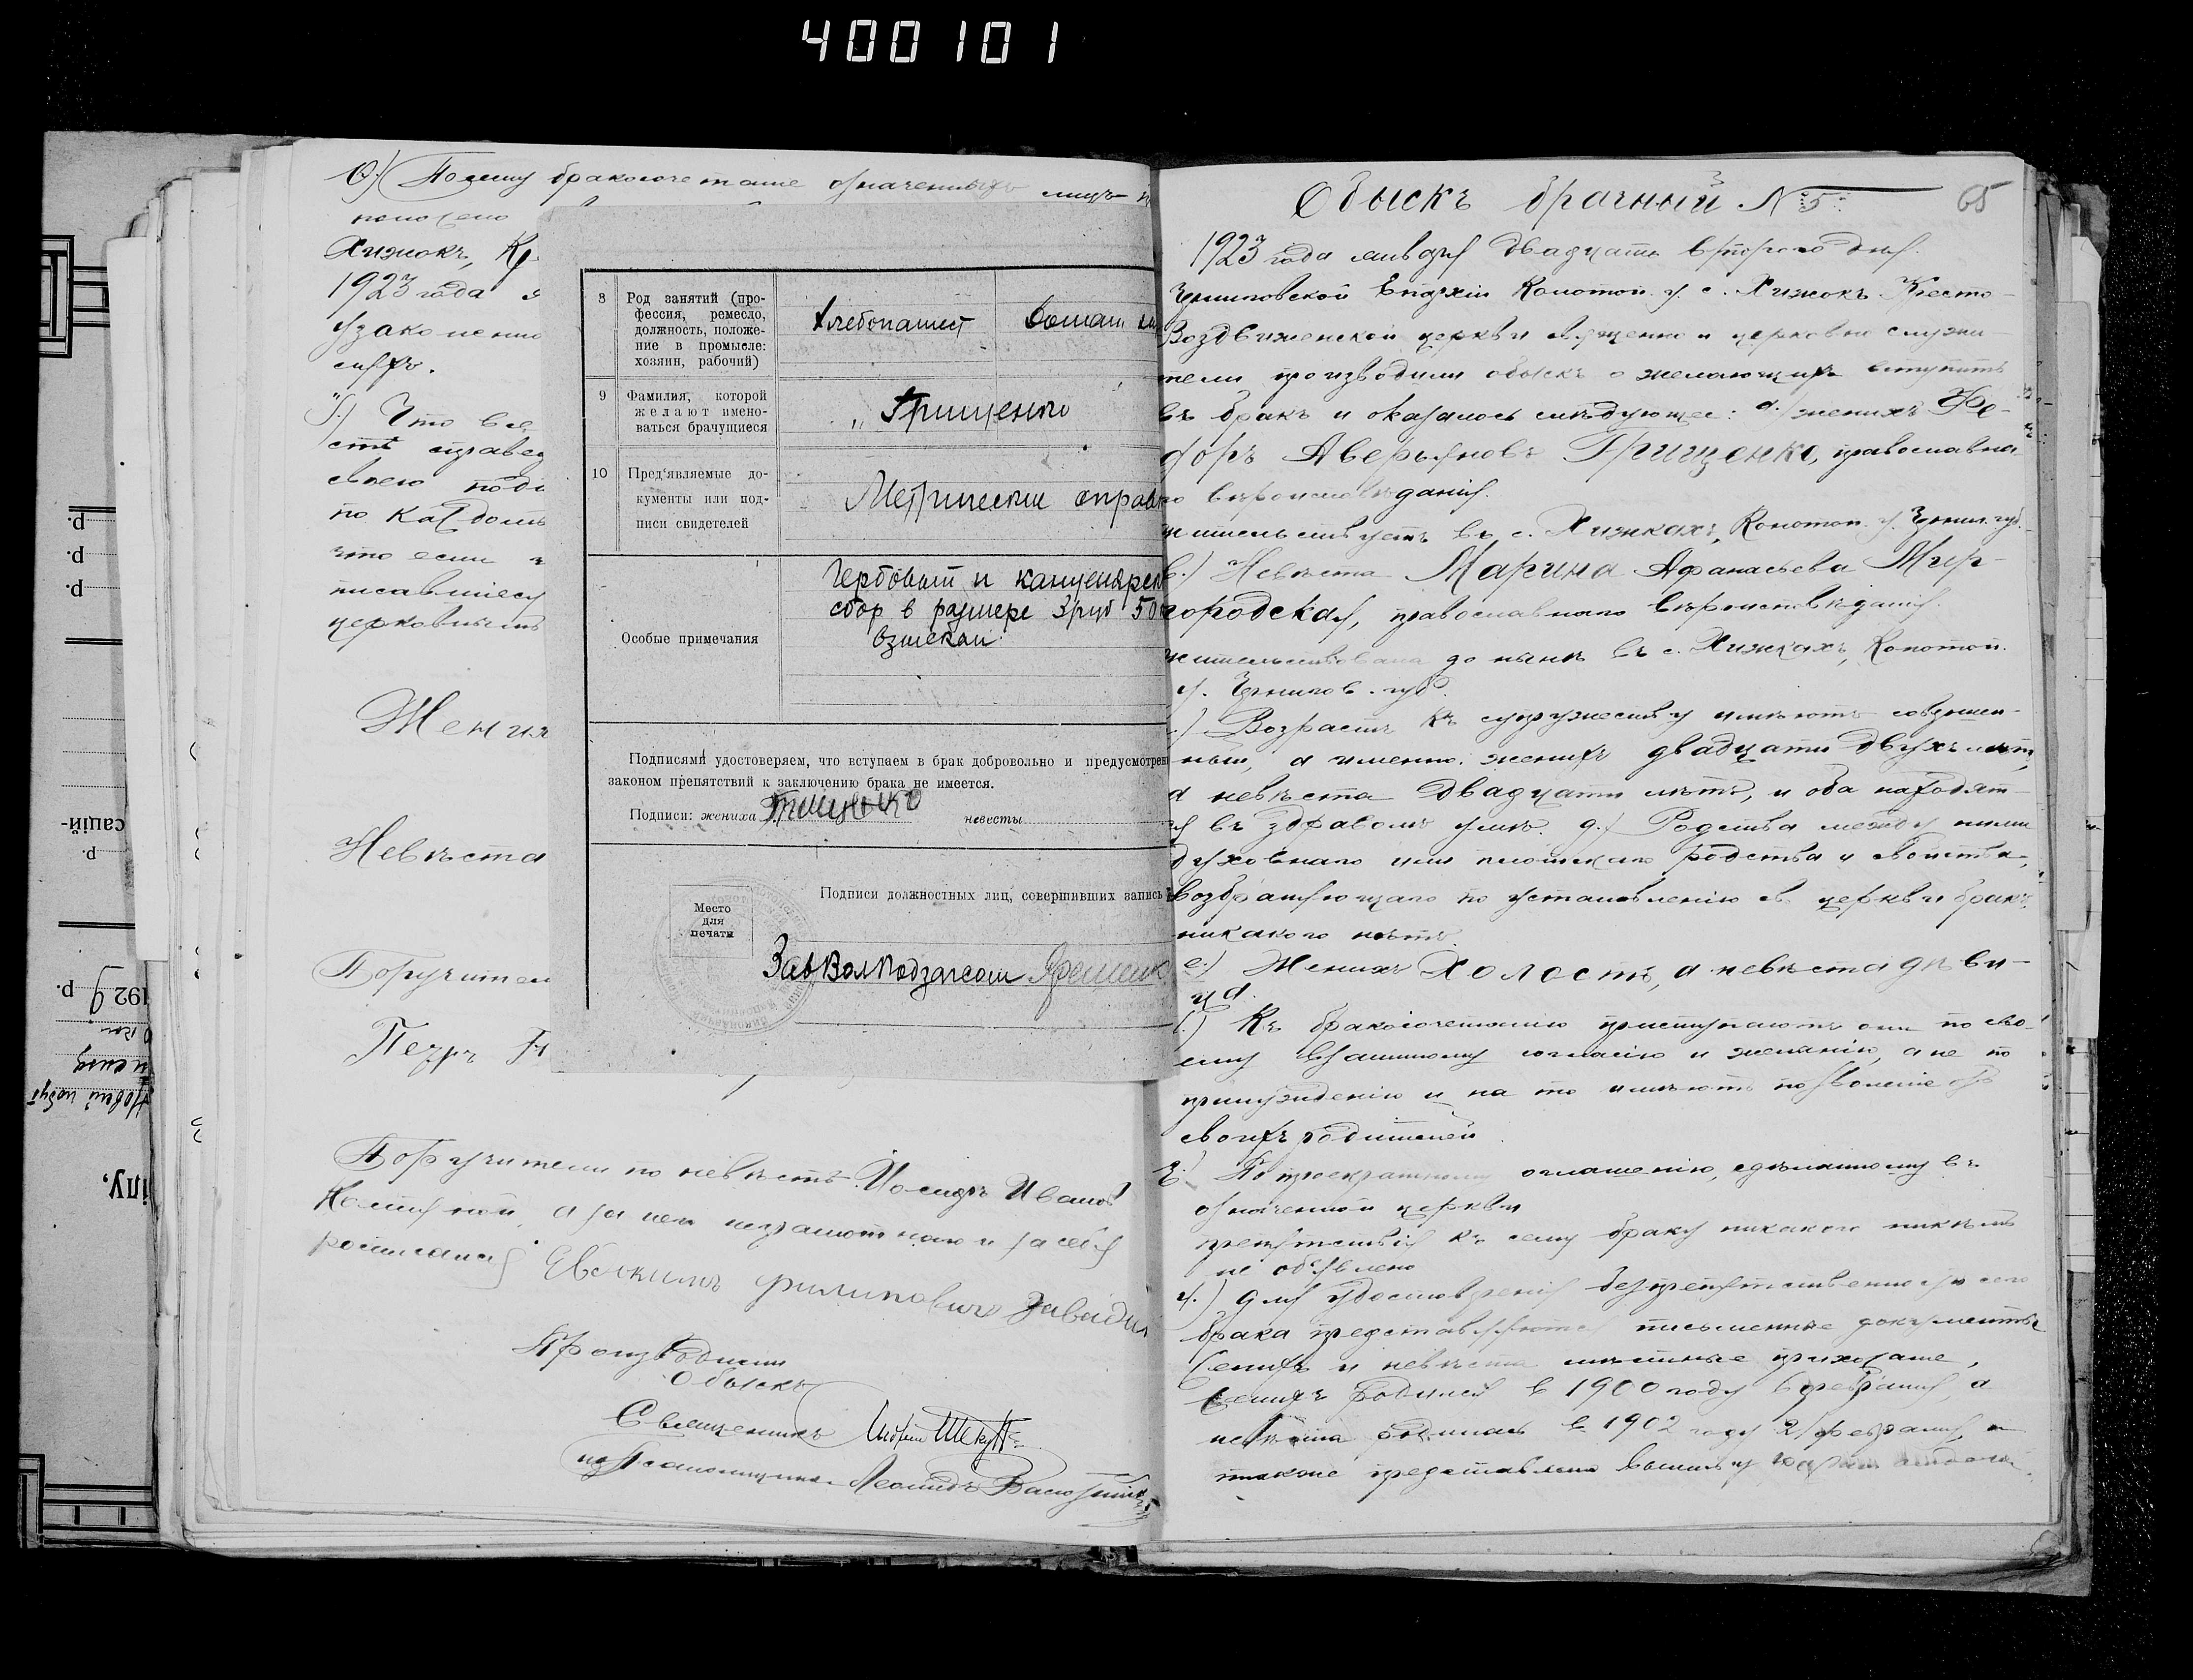 400101
Ѳ.) Посему бракосочетаніе означенныхъ лицъ
положено
Хижокъ, Кр
1923 года я
узаконенно
сихъ.
Что все
справед
свою подп
по каждомъ
что если
писавшіесу
церковнымъ
Жених
Невѣста
Поручител
Петръ
Поручители по невѣстѣ: Іосифъ Иванов
а за него неграмотнаго и за себя
росписался Евдокимъ Филиповичъ Завади
Производили
обыскъ
Священникъ
Псаломщика Леонидъ
8 Род занятий (про-
фессия, ремесло,
должность, положе-
ние в промысле:
хозяин, рабочий)
Хлебопашест
домаш
9 Фамилия, которой
желают имено-
ваться брачущиеся
„ Грищенко
10 Пред'являемые до-
кументы или под-
писи свидетелей
Метрически справк
Особые примечания
Гербовый и канцелярск
сбор в размере 3 руб 50
взыскан.
Подписями удостоверяем, что вступаем в брак добровольно и предусмотрен
законом препятствий к заключению брака не имеется.
Подписи: жениха Грищенко невесты
Подписи должностных лиц, совершивших запись
Место
для
печати
Зав Волподзагсом
Обыскъ брачный N 5 65
1923 года января двадцать второго дня.
Черниговской Епархіи Конотоп. у. с. Хижокъ Кресто-
Воздвиженской церкви священно и церковно служи-
тели производили обыскъ о желающихъ вступить
въ бракъ и оказалось слѣдующее: а.) женихъ Фе-
доръ Аверьяновъ Грищенко, православна
го вѣроисповѣданія.
жительствуетъ въ с. Хижкахъ, Конотоп. у. Черниг. губ.
в.) Невѣста Марина Афанасьева Мир-
городская, православнаго вѣроисповѣданія.
жительствовала до нынѣ въ с. Хижкахъ, Конотоп.
у. Чернигов. губ.
) Возрастъ къ супружеству имѣютъ совершен-
ный, а именно: женихъ двадцати двухъ лѣтъ,
а невѣста двадцати лѣтъ, и оба находят-
ся въ здравомъ умѣ. д.) Родства между ними
духовнаго или плотскаго родства и свойства,
возбраняющаго по установленію св. церкви бракъ,
никакого нѣтъ.
е.) Женихъ холостъ, а невѣста дѣви-
ца.
.) Къ бракосочетанію приступаютъ они по сво-
ему взаимному согласію и желанію, а не по
принужденію и на то имѣютъ позволеніе отъ
своихъ родителей.
По троекратному оглашенію, сдѣланному въ
означенной церкви
препятствія къ сему браку никакого никѣмъ
не объявлено
.) Для удостовѣренія безпрепятственности сего
брака представляются письменные документы
Женихъ и невѣста мѣстные прихожане,
Женихъ родился в 1900 году февраля, а
невѣста родилась в 1902 году 21 февраля, а
также представлена
сацій-
р.
р.
р.
р.
1929 р.
ілу,